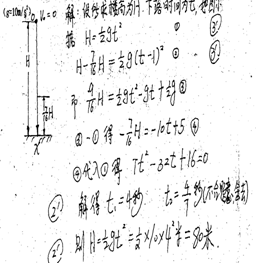 (g=10m/s²) V₀=0
解:设所求楼高为H,下落时间为t,
据 H=½gt² ①
H-7/16H=½g(t-1)² ②
即 9/16H=½gt²-gt+½g ③
③-①得 -7/16H=-10t+5 ④
④代入①得 7t²-32t+16=0
解得 t₁=4秒 t₂=4/7秒(不合题意,舍去)
则 H=½gt²=½×10×4²米=80米.
H
7/16H